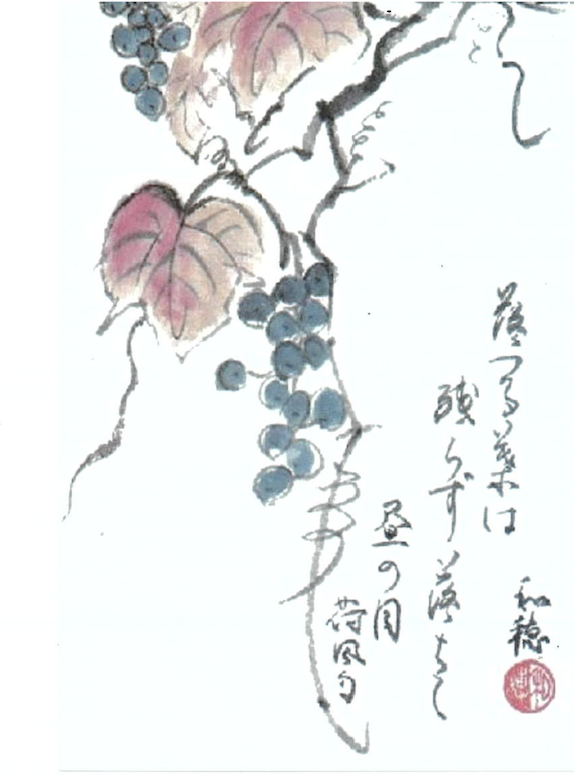 落つる葉は
残らず落ちて
昼の月
荷風句
和穂